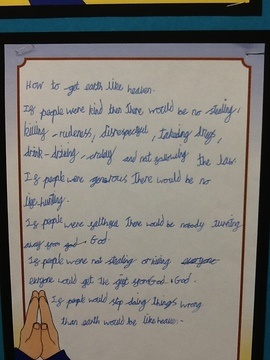 How to get earth like heaven.
If people were kind then there would be no stealing,
killing - rudeness, disrespected, takeing drugs,
drink - driving, and not following the law.
If people were generous, there would be no
If people were there would be nobody
away God
If people were not stealing or
everyone would get the God.
If people would stop doing things wrong
than earth would be like heaven.